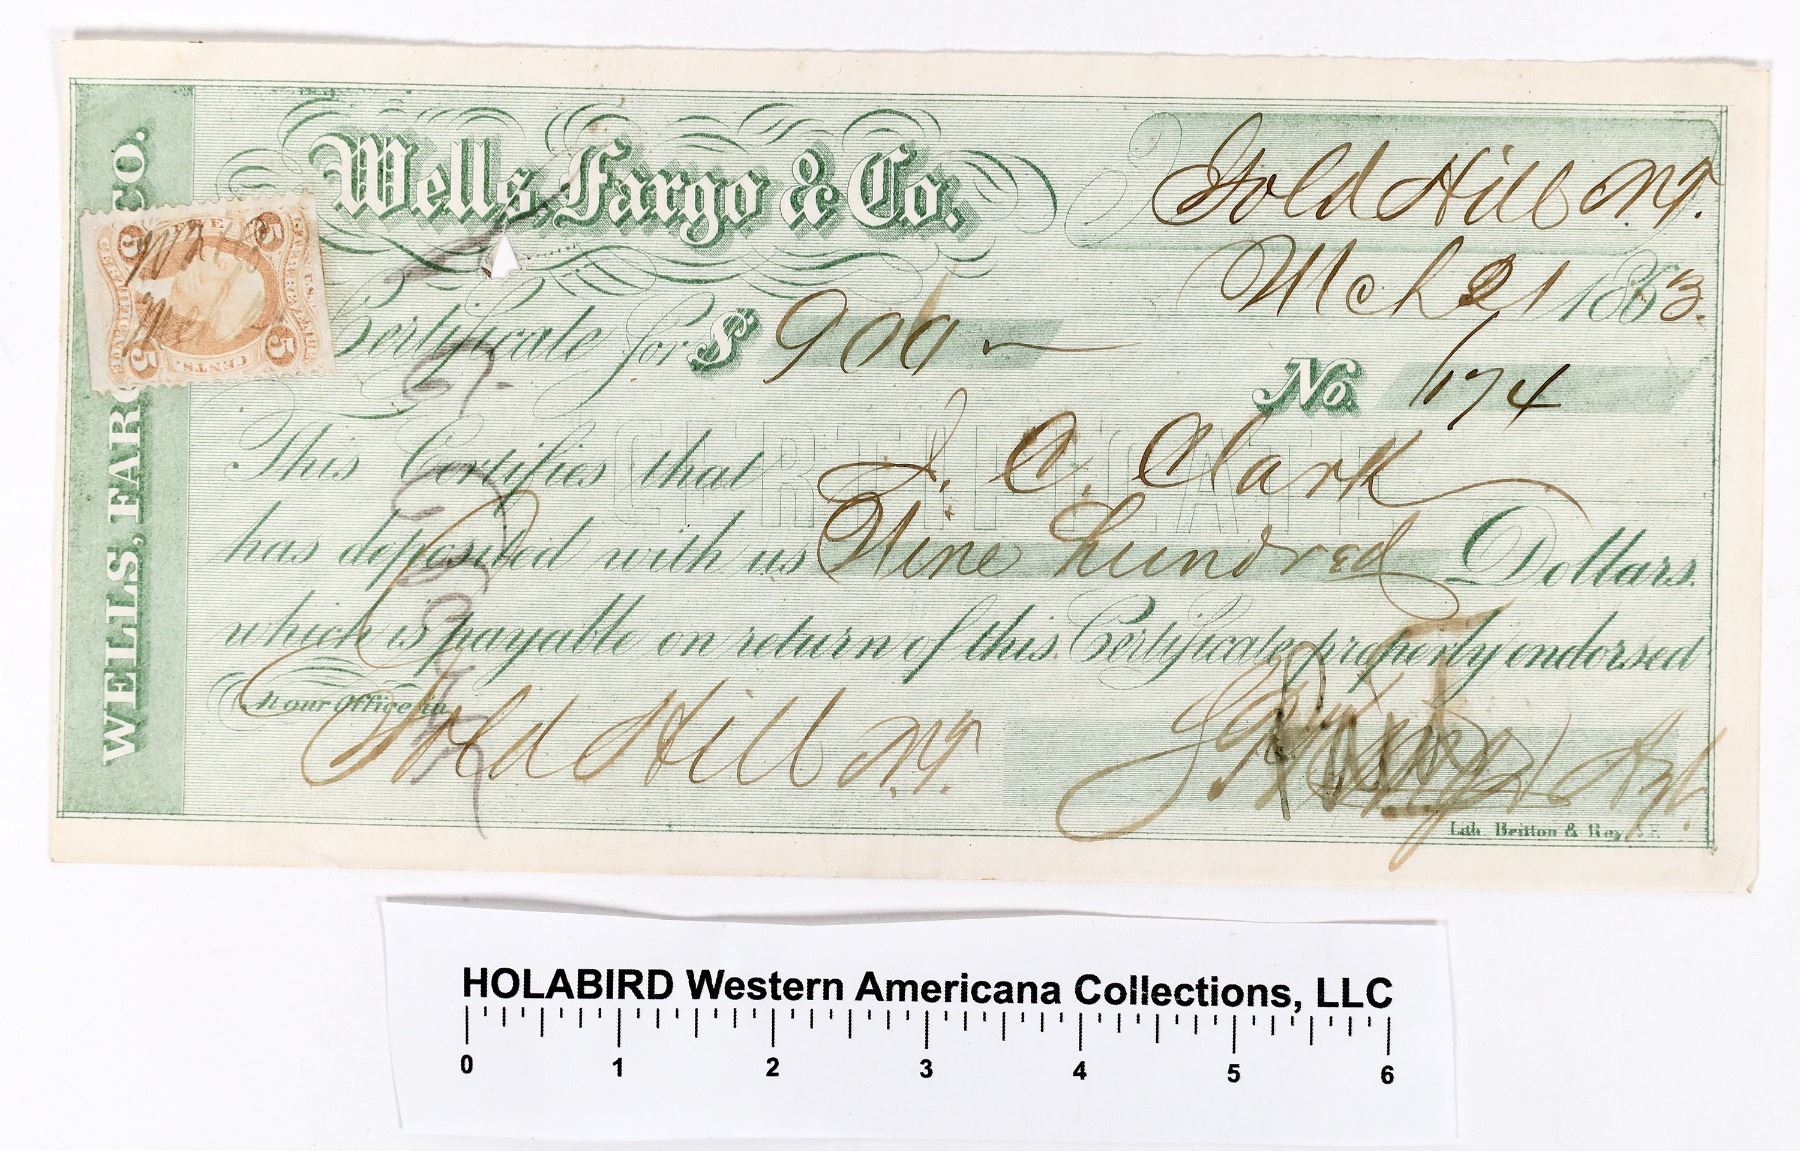 Wells, Fargo & Co.
Gold Hill N.T.
Mch 21 1863.
Certificate for $ 900
No. 174
This Certifies that J. A. Clark
has deposited with us Nine hundred Dollars.
which is payable on return of this Certificate properly endorsed
in our Office in
Gold Hill N.T.
Agt.
Lith. Britton & Rey, S.F.
WELLS, FARGO & CO.
5 5
FIVE
CENTS.
5 5
U.S. INTER. REV.
CERTIFICATE
CERTIFICATE
HOLABIRD Western Americana Collections, LLC
0 1 2 3 4 5 6